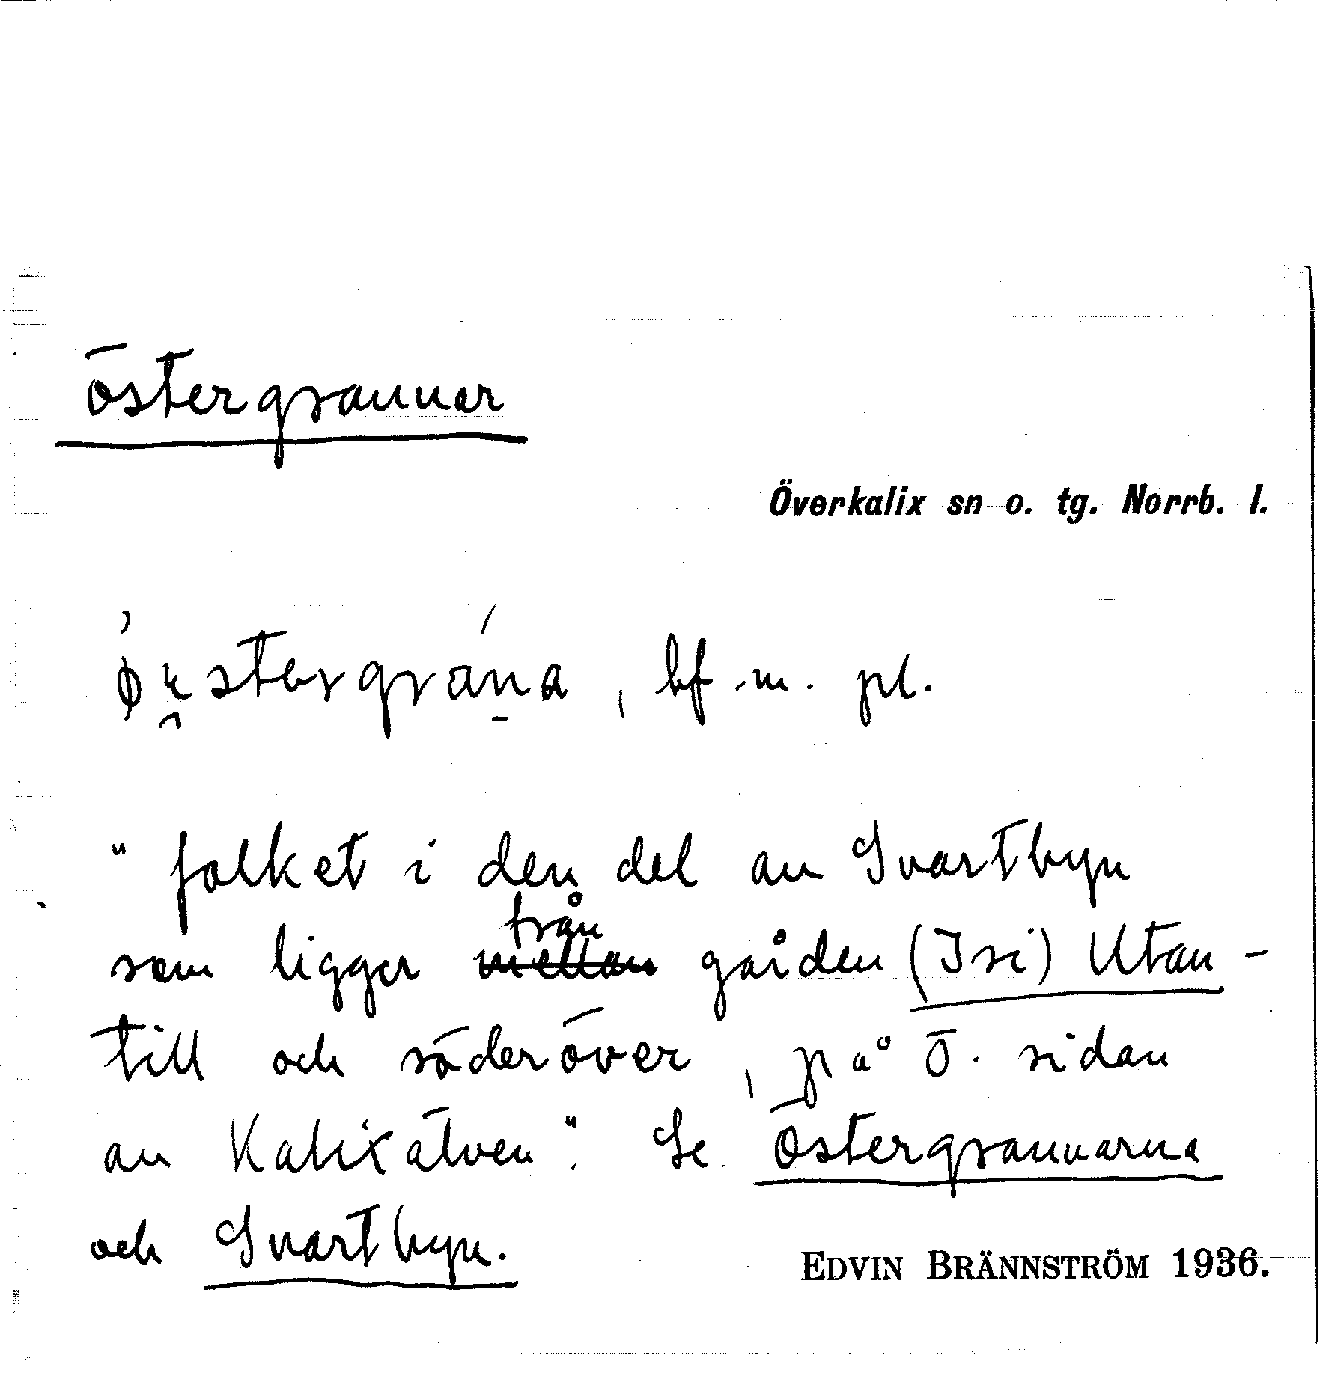 östergrannar
Överkalix sn o. tg. Norrb. l.
, bf. m. pl.
"folket i den del av Svartbyn
från
som ligger mellan gården (Isi) Utan-
till och söderöver, på ö. sidan
av Kalixälven". Se Östergrannarna
och Svartbyn.
EDVIN BRÄNNSTRÖM 1936.